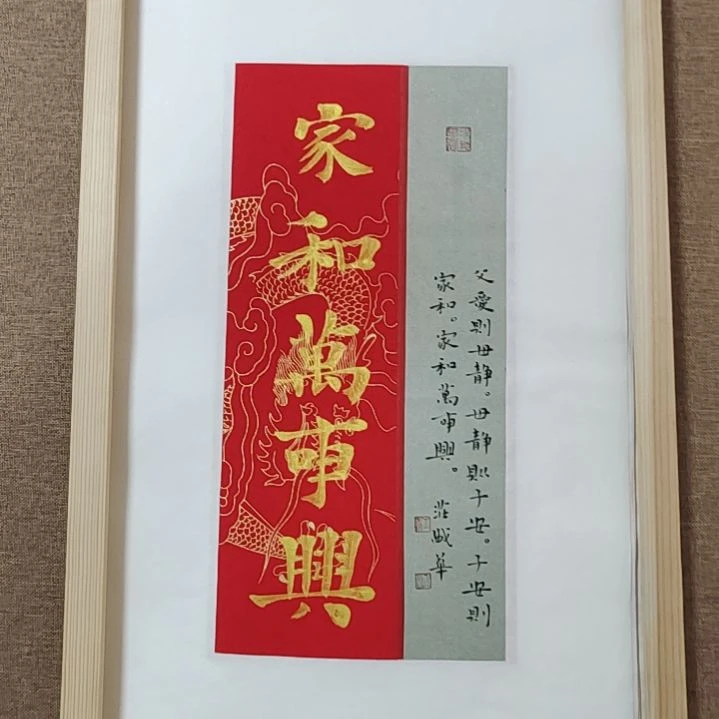 家和萬事興
父愛則母静。母静則子安。子安則
家和。家和萬事興。